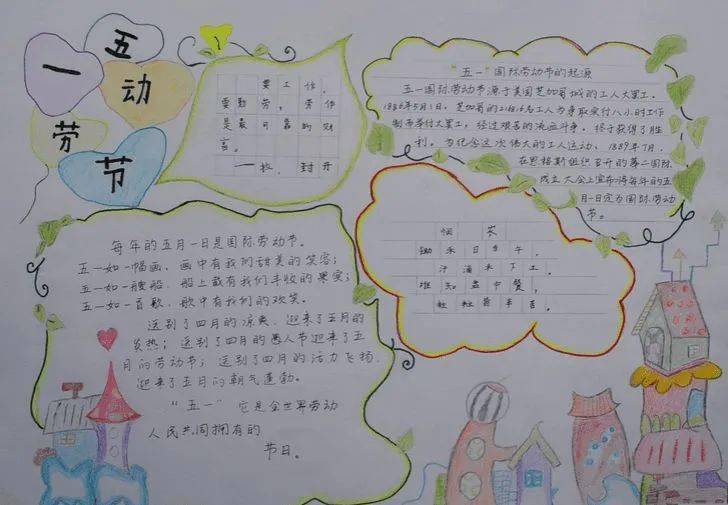 五
一
动
劳
节
要工作,
要勤劳,劳作
是最可靠的财
富。
——拉.封丹
“五一”国际劳动节的起源
五一国际劳动节源于美国芝加哥城的工人大罢工。
1886年5月1日,芝加哥的216000名工人为争取实行八小时工作
制而举行大罢工,经过艰苦的流血斗争,终于获得了胜
利。为纪念这次伟大的工人运动,1889年7月,
在恩格斯组织召开的第二国际
成立大会上宣布将每年的五
月一日定为国际劳动
节。
每年的五月一日是国际劳动节。
五一如一幅画,画中有我们甜美的笑容;
五一如一艘船,船上载有我们丰收的果实;
五一如一首歌,歌中有我们的欢笑。
送别了四月的凉爽,迎来了五月的
炎热;送别了四月的愚人节迎来了五
月的劳动节;送别了四月的活力飞扬,
迎来了五月的朝气蓬勃。
“五一”它是全世界劳动
人民共同拥有的
节日。
悯农
锄禾日当午,
汗滴禾下土。
谁知盘中餐,
粒粒皆辛苦。